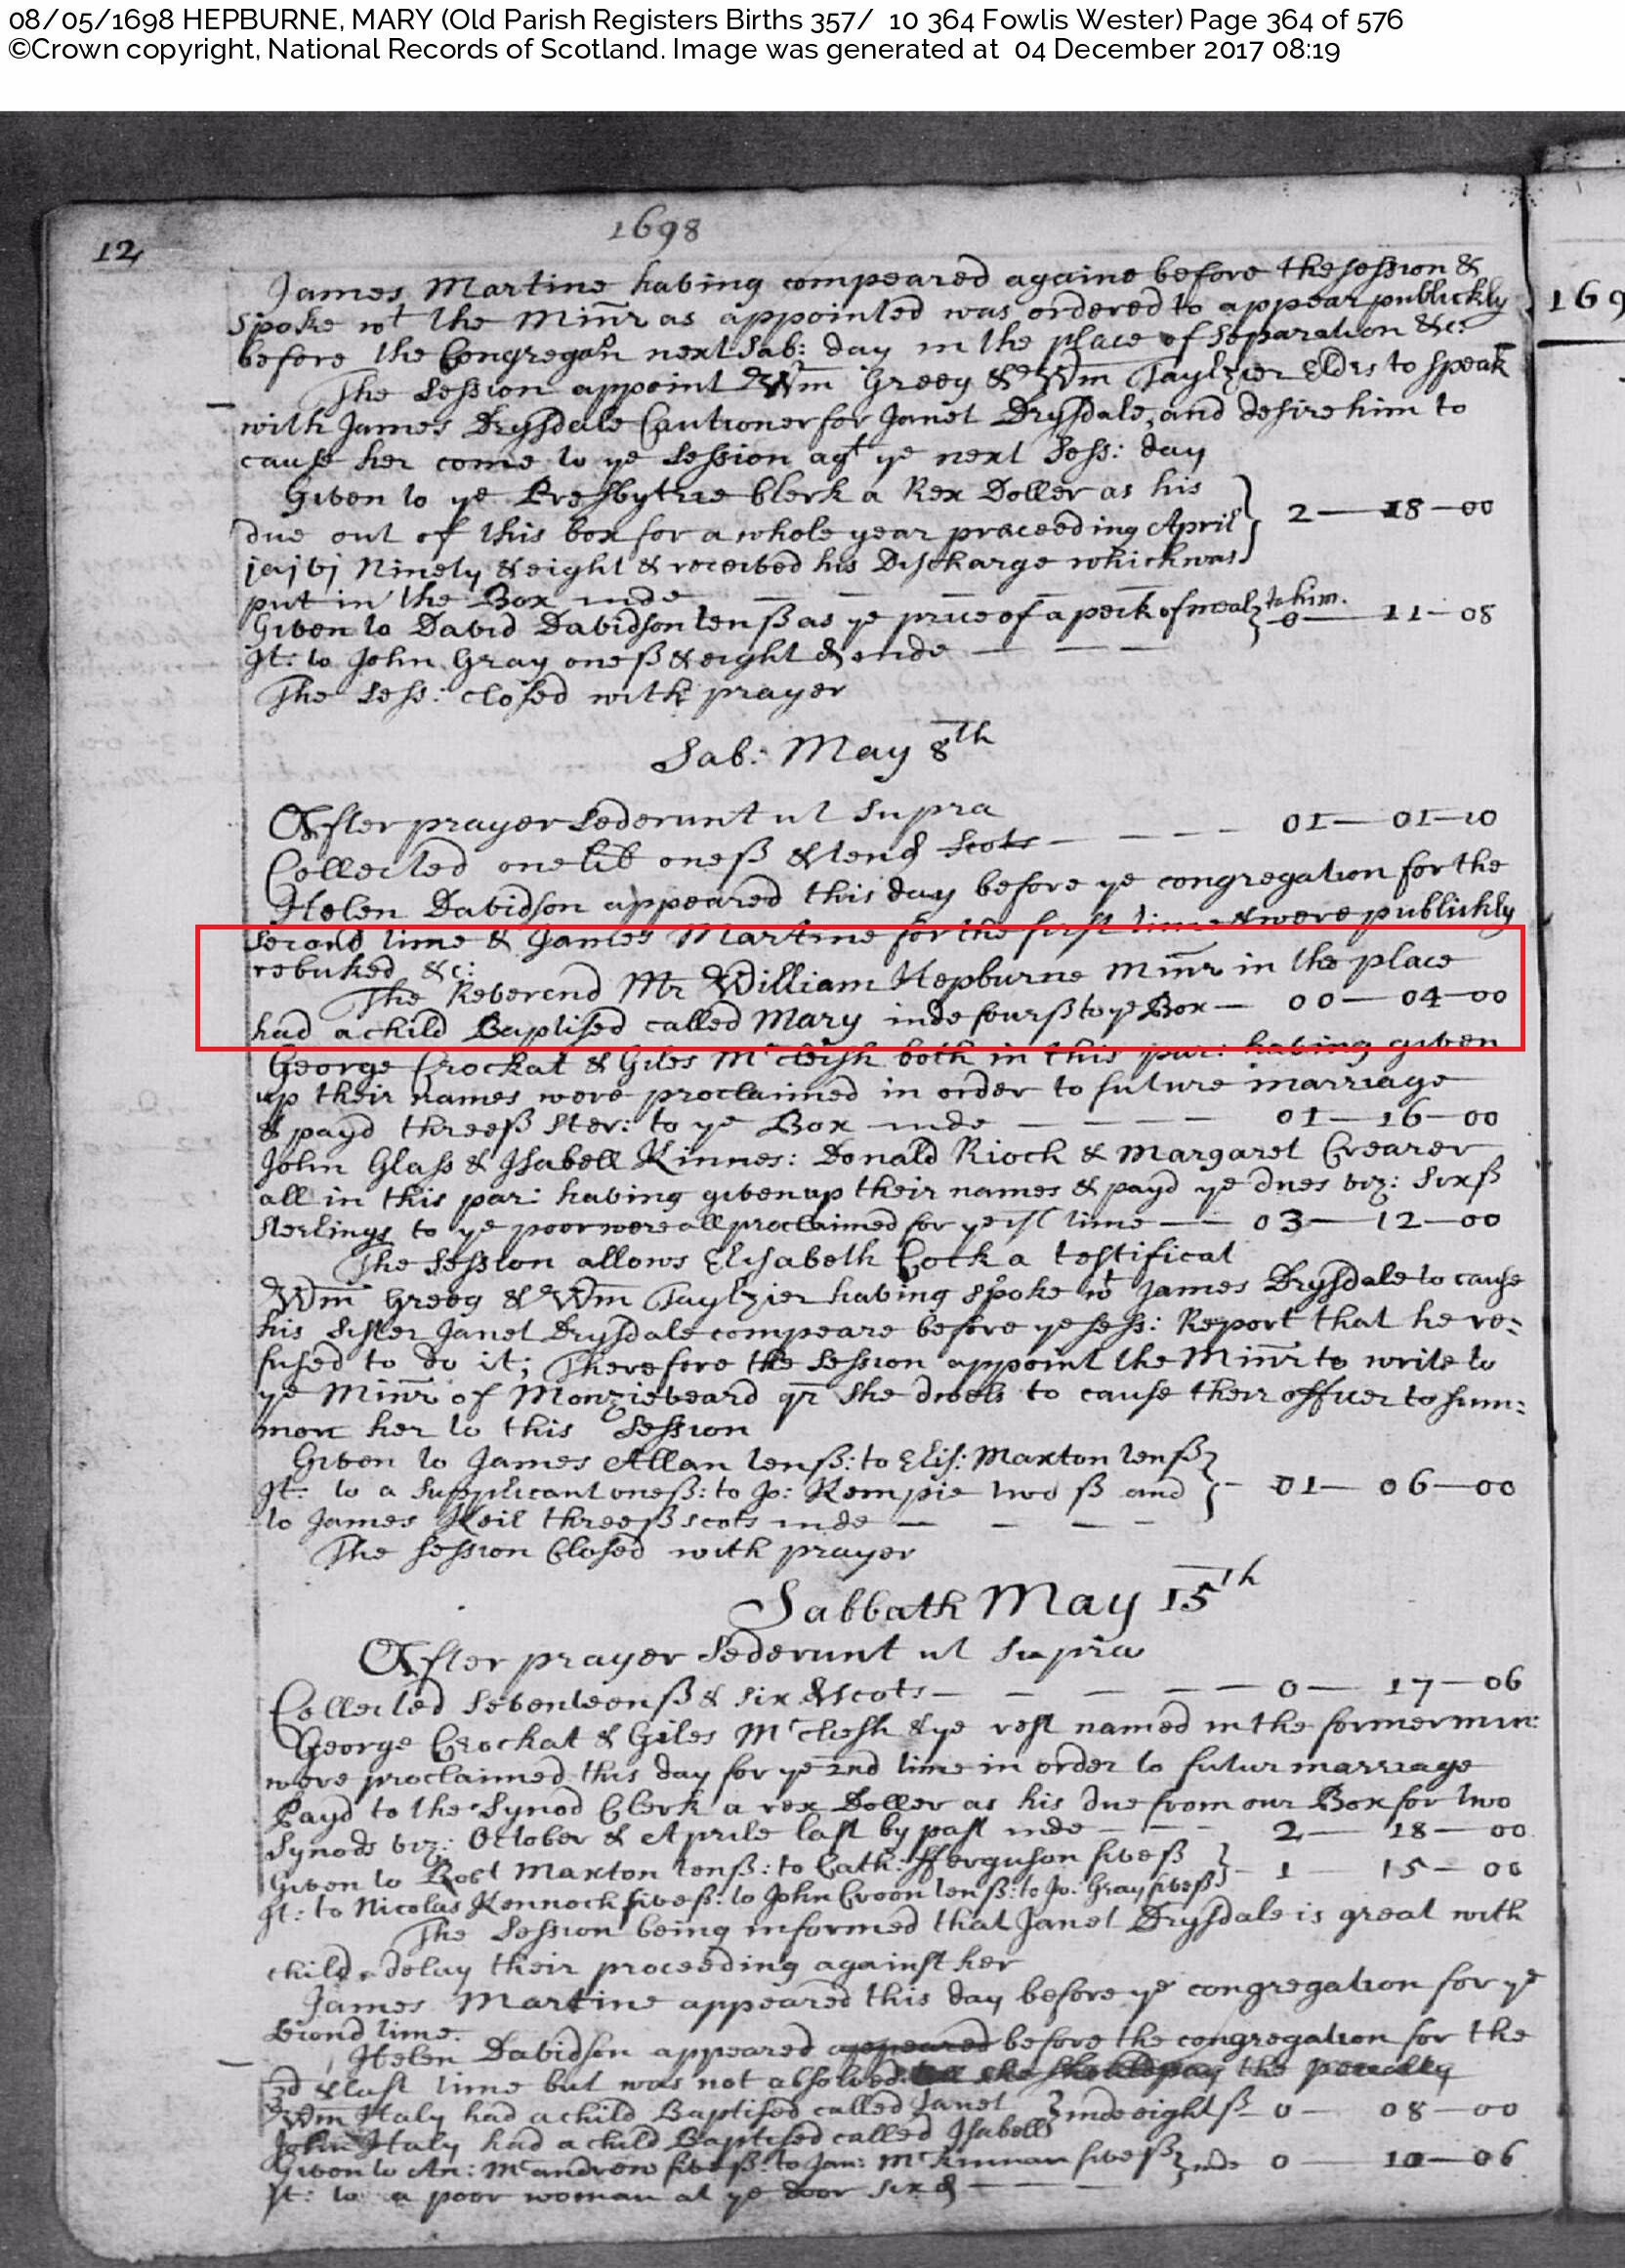 08/05/1698 HEPBURNE, MARY (Old Parish Registers Births 357/ 10 364 Fowlis Wester) Page 364 of 576
©Crown copyright, National Records of Scotland. Image was generated at 04 December 2017 08:19
1698
12
James Martine having compeared againe before the session &
spoke wt the Minr as appointed was ordered to appear publickly
before the Congregaon next Sab: day in the place of Separation &c:
The Session appoint Wm Greeg & Wm Taylzier Elders to speak
with James Drysdale Cautioner for Janet Drysdale, and desire him to
cause her come to ye Session agt ye next Sess: day
Given to ye Presbytrie Clerk a Rex Doller as his
due out of this box for a whole year preceeding April 2—18—00
jajvj Ninety & eight & received his Discharge which was
put in the Box inde
Given to David Davidson ten ß as ye price of a peck of meal to him. 0—11—08
It: to John Gray one ß & eight d inde
The Sess: closed with prayer
Sab: May 8th
After prayer Sederunt ut Supra
Collected one lib one ß & ten d Scots 01—01—10
Helen Davidson appeared this day before ye congregation for the
second time & James Martine for the first time & were publickly
rebuked &c:
The Reverend Mr William Hepburne Minr in the place
had a child Baptised called Mary inde four ß to ye Box — 00—04—00
George Crockat & Giles McCleish both in this par: having given
up their names were proclaimed in order to future marriage
& payd three ß Ster: to ye Box inde 01—16—00
John Glass & Isabell Kinnes: Donald Rioch & Margaret Crearer
all in this par: having given up their names & payd ye dues viz: Six ß
Sterlings to ye poor were all proclaimed for ye 1st time — 03—12—00
The Session allows Elisabeth Cock a testificat
Wm Greeg & Wm Taylzier having spoke wt James Drysdale to cause
his Sister Janet Drysdale compeare before ye sess: Report that he re=
fused to do it; Therefore the Session appoint the Minr to write to
ye Minr of Monzieveard qr she dwels to cause their officer to sum:
mon her to this Session
Given to James Allan ten ß: to Elis: Maxton ten ß
It: to a Supplicant one ß: to Jo: Kempie two ß and 01—06—00
to James Keil three ß scots inde
The Session Closed with prayer
Sabbath May 15th
After prayer Sederunt ut Supra
Collected Seventeen ß & six d Scots — 0—17—06
George Crockat & Giles McCleish & ye rest named in the former min:
were proclaimed this day for ye 2nd time in order to futur marriage
Payd to the Synod Clerk a rex Doller as his due from our Box for two
Synods viz: October & Aprile last by past inde 2—18—00
Given to Robt Maxton ten ß: to Cath: Fferguson five ß 1 15—00
It: to Nicolas Kennoch five ß: to John Croon ten ß: to Jo: Gray five ß
The Session being informed that Janet Drysdale is great with
child, delay their proceeding against her
James Martine appeared this day before ye congregation for ye
Second time.
Helen Davidson appeared appeared before the congregation for the
3d & last time but was not absolved till she should pay the penalty
Wm Haly had a child Baptised called Janet inde eight ß 0—08—00
John Haly had a child Baptised called Isabell
Given to An: McAndrew five ß: to Jan: McKinnan five ß inde 0—10—06
It: to a poor woman at ye door six d
169